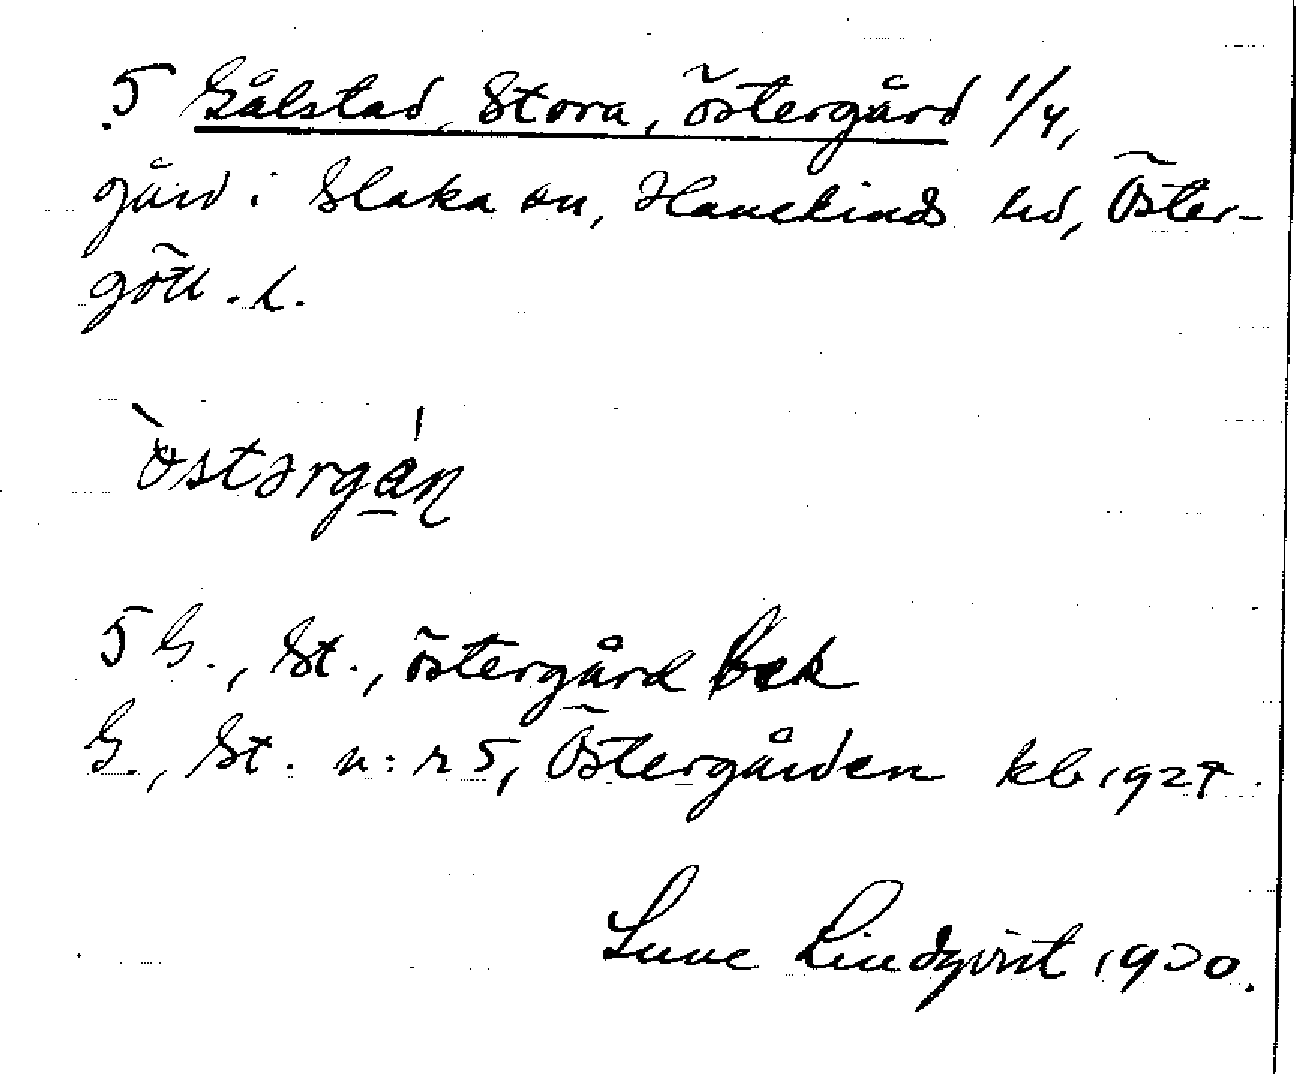 5 Gålstad, Stora, Östergård 1/4,
gård i Slaka sn, Hanekinds hd, Öster-
götl. l.
östərgán
5 G., St., östergård Bek
G., St. n:r 5, Östergården kb 1927.
Sune Lindqvist 1930.